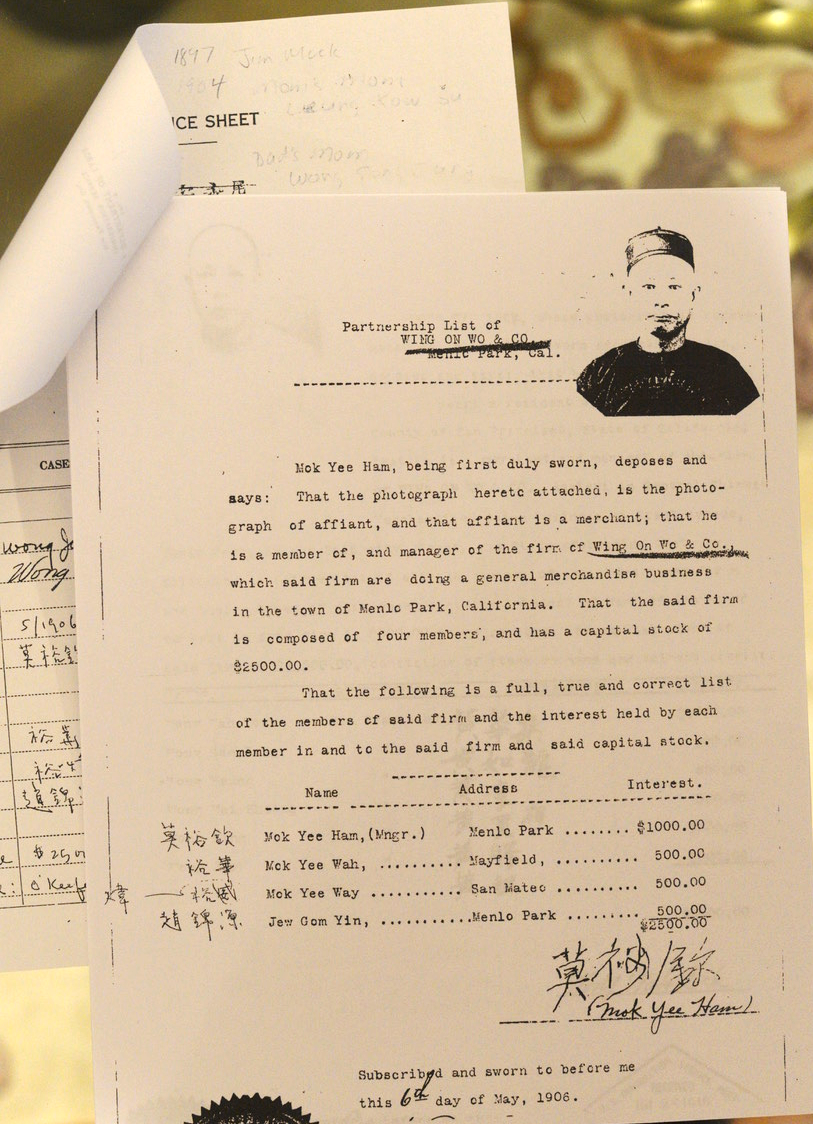 1897 Jun Mock
Mom's Mom
Leung Kow Su
ICE SHEET
Dad's Mom
Wong Fung
Partnership List of
WING ON WO & CO.
Menlo Park, Cal.
Mok Yee Ham, being first duly sworn, deposes and
says: That the photograph hereto attached, is the photo-
graph of affiant, and that affiant is a merchant; that he
is a member of, and manager of the firm of Wing On Wo & Co.,
which said firm are doing a general merchandise business
in the town of Menlo Park, California. That the said firm
is composed of four members, and has a capital stock of
$2500.00.
That the following is a full, true and correct list
of the members of said firm and the interest held by each
member in and to the said firm and said capital stock.
Name Address Interest.
莫裕欽 Mok Yee Ham,(Mngr.) Menlo Park ........ $1000.00
裕華 Mok Yee Wah, .......... Mayfield, .......... 500.00
煒 裕威 Mok Yee Way ........... San Mateo .......... 500.00
趙錦源 Jew Gom Yin, ...........Menlo Park ......... 500.00
$2500.00
莫裕欽
(Mok Yee Ham)
Subscribed and sworn to before me
this 6th day of May, 1906.
CASE
Wong
Wong
5/1906
莫裕欽
裕華
裕
趙錦
$250
O'Keef